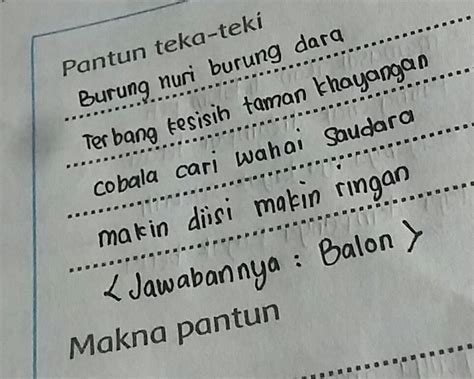 Pantun teka-teki
Burung nuri burung dara
Terbang kesisih taman khayangan
cobala cari wahai saudara
makin diisi makin ringan
<Jawabannya : Balon>
Makna pantun